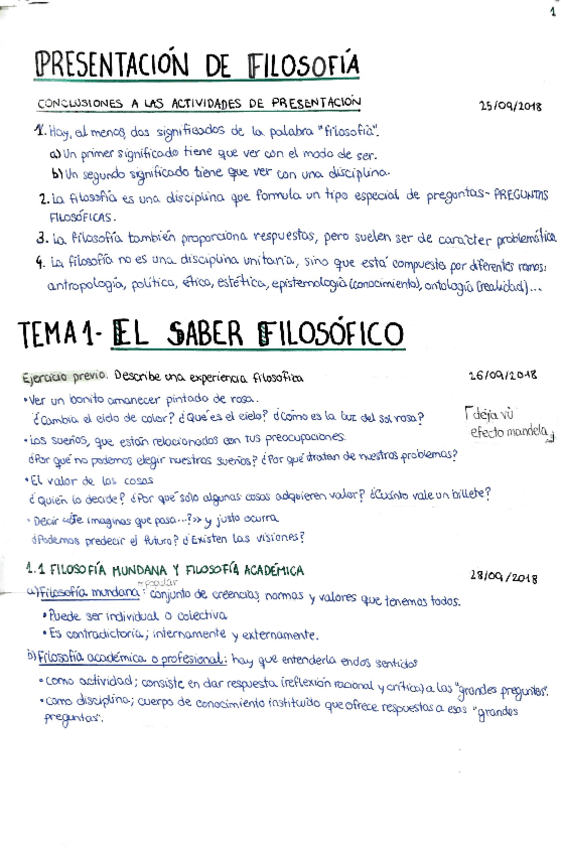 1
PRESENTACIÓN DE FILOSOFÍA
CONCLUSIONES A LAS ACTIVIDADES DE PRESENTACIÓN 25/09/2018
1. Hay, al menos, dos significados de la palabra "filosofía".
a) Un primer significado tiene que ver con el modo de ser.
b) Un segundo significado tiene que ver con una disciplina.
2. La filosofía es una disciplina que formula un tipo especial de preguntas- PREGUNTAS
FILOSÓFICAS.
3. La filosofía también proporciona respuestas, pero suelen ser de carácter problemática
4. La filosofía no es una disciplina unitaria, sino que está compuesta por diferentes ramas:
antropología, política, ética, estética, epistemología (conocimiento), ontología (realidad)...
TEMA 1- EL SABER FILOSÓFICO
Ejercicio previo. Describe una experiencia filosófica 26/09/2018
• Ver un bonito amanecer pintado de rosa.
¿Cambia el cielo de color? ¿Qué es el cielo? ¿Cómo es la luz del sol rosa?
déja vù
efecto mandela
• Los sueños, que están relacionados con tus preocupaciones.
¿Por qué no podemos elegir nuestros sueños? ¿Por qué tratan de nuestros problemas?
• El valor de las cosas
¿Quién lo decide? ¿Por qué sólo algunas cosas adquieren valor? ¿Cuánto vale un billete?
• Decir «¿Te imaginas que pasa...?» y justo ocurra
¿Podemos predecir el futuro? ¿Existen las visiones?
1.1 FILOSOFÍA MUNDANA Y FILOSOFÍA ACADÉMICA 28/09/2018
popular
a) Filosofía mundana: conjunto de creencias, normas y valores que tenemos todos.
• Puede ser individual o colectiva
• Es contradictoria; internamente y externamente.
b) Filosofía académica o profesional: hay que entenderla en dos sentidos
• como actividad; consiste en dar respuesta (reflexión racional y crítica) a las "grandes preguntas".
• como disciplina; cuerpo de conocimiento instituido que ofrece respuestas a esas "grandes
preguntas".